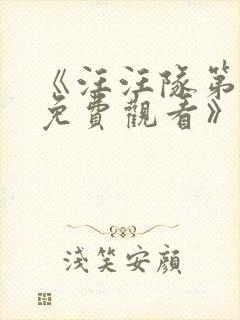 《汪汪隊第
免費觀看》
淺笑安顏